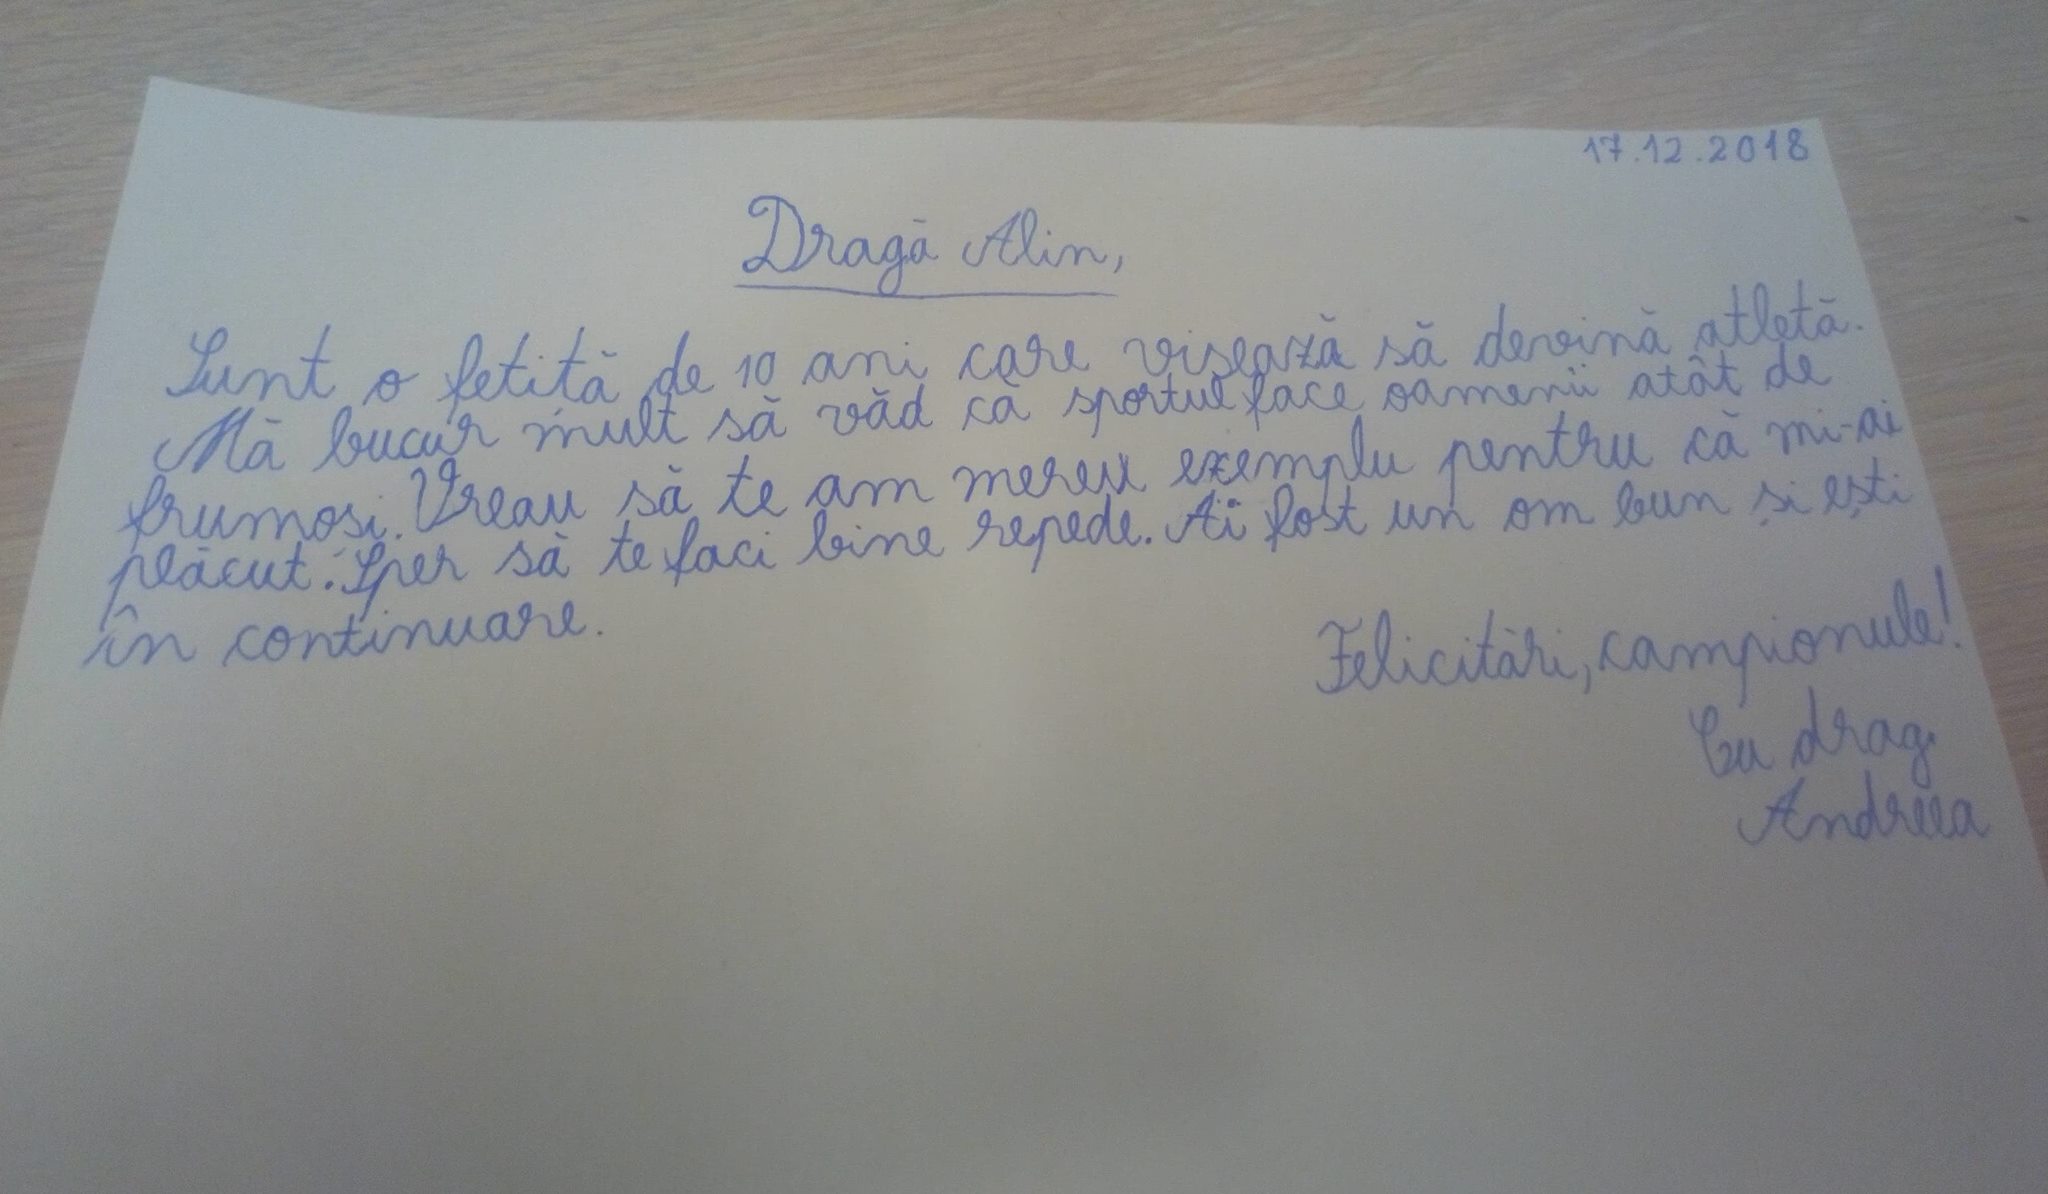 17.12.2018
Dragă Alin,
Sunt o fetiță de 10 ani care visează să devină atletă.
Mă bucur mult să văd că sportul face oamenii atât de
frumoși. Vreau să te am mereu exemplu pentru că mi-ai
plăcut. Sper să te faci bine repede. Ai fost un om bun și ești
în continuare.
Felicitări, campionule!
Cu drag
Andreea